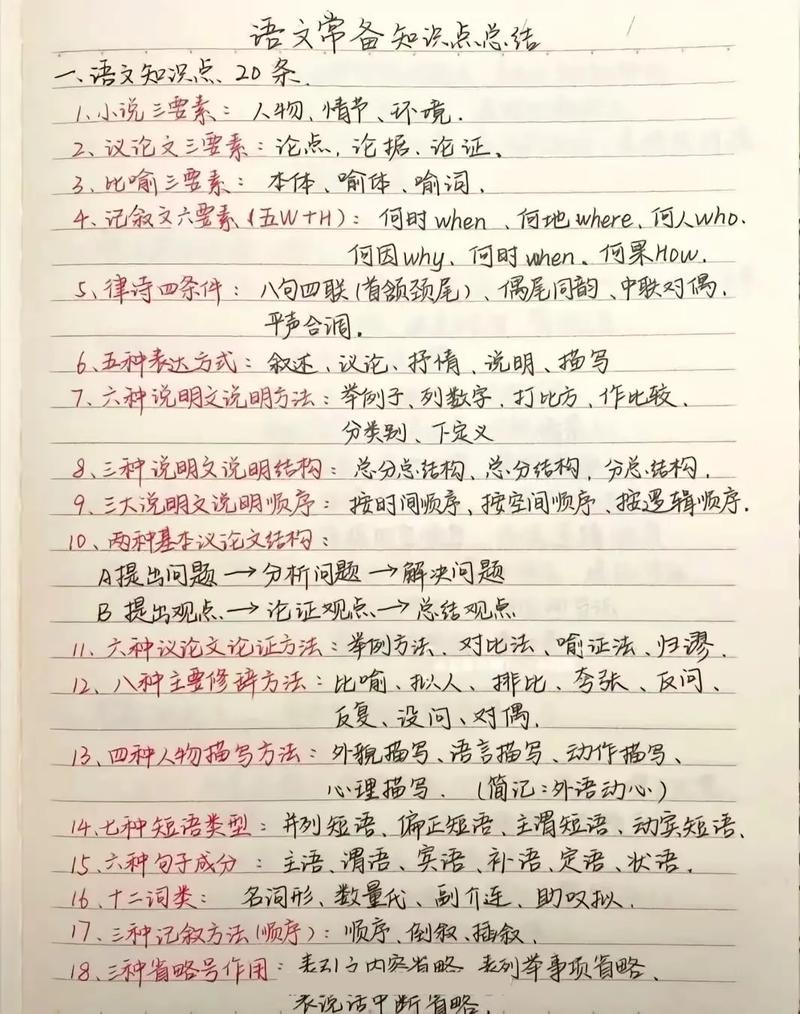 语文常备知识点总结
一、语文知识点 20条.
1、小说三要素：人物、情节、环境.
2、议论文三要素：论点，论据、论证。
3、比喻三要素：本体、喻体、喻词，
4、记叙文六要素（五W+H）：何时when、何地where，何人who.
何因why、何时when、何果How.
5、律诗四条件：八句四联（首颔颈尾）、偶尾同韵、中联对偶，
平声合调.
6、五种表达方式：叙述、议论、抒情、说明、描写
7、六种说明文说明方法：举例子、列数字，打比方、作比较、
分类别、下定义
8、三种说明文说明结构：总分总结构、总分结构，分总结构，
9、三大说明文说明顺序：按时间顺序、按空间顺序、按逻辑顺序.
10、两种基本议论文结构：
A提出问题→分析问题→解决问题
B 提出观点→论证观点→总结观点
11、六种议论文论证方法：举例方法、对比法、喻证法、归谬，
12、八种主要修辞方法：比喻、拟人、排比、夸张、反问、
反复、设问、对偶，
13、四种人物描写方法：外貌描写、语言描写、动作描写、
心理描写.（简记：外语动心）
14、七种短语类型：并列短语、偏正短语、主谓短语、动宾短语、
15、六种句子成分：主语、谓语、宾语、补语、定语、状语，
16、十二词类：名词形、数量代、副介连、助叹拟.
17、三种记叙方法（顺序）：顺序、倒叙、插叙、
18、三种省略号作用：表引 内容省略 表列举事项省略、
表说话中断省略.